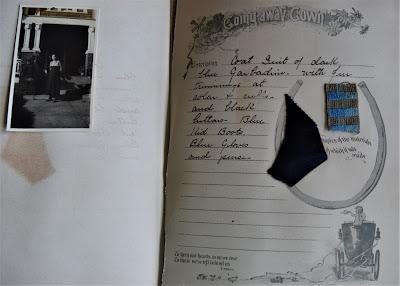 Going away Gown
Description. Coat Suit of dark
blue Garbadine. with fur
trimmings at
colar & cuffs.
and black
buttons. Blue
Kid Boots.
Blue Gloves
and purse.
Samples of the materials
of which it was
made.
To those we've left behind us